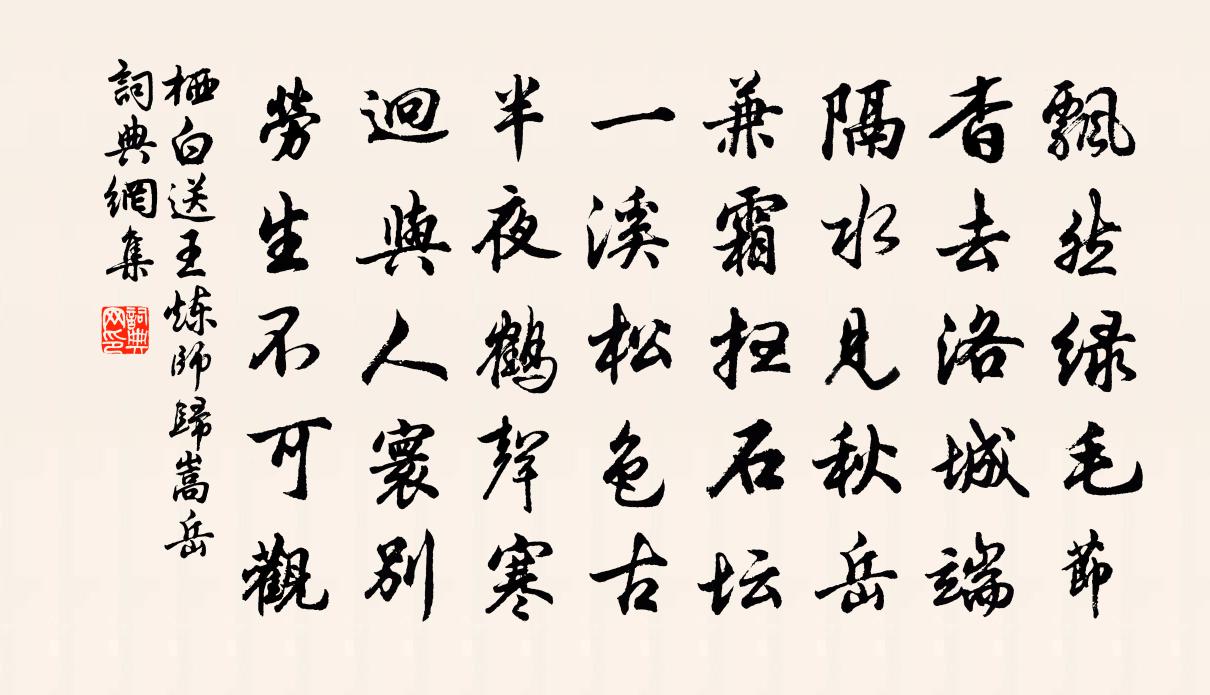 飄然綠毛節
杳去洛城端
隔水見秋岳
兼霜掃石坛
一溪松色古
半夜鶴聲寒
迥與人寰別
勞生不可觀
栖白送王炼師歸嵩岳
詞典網集
詞典网印